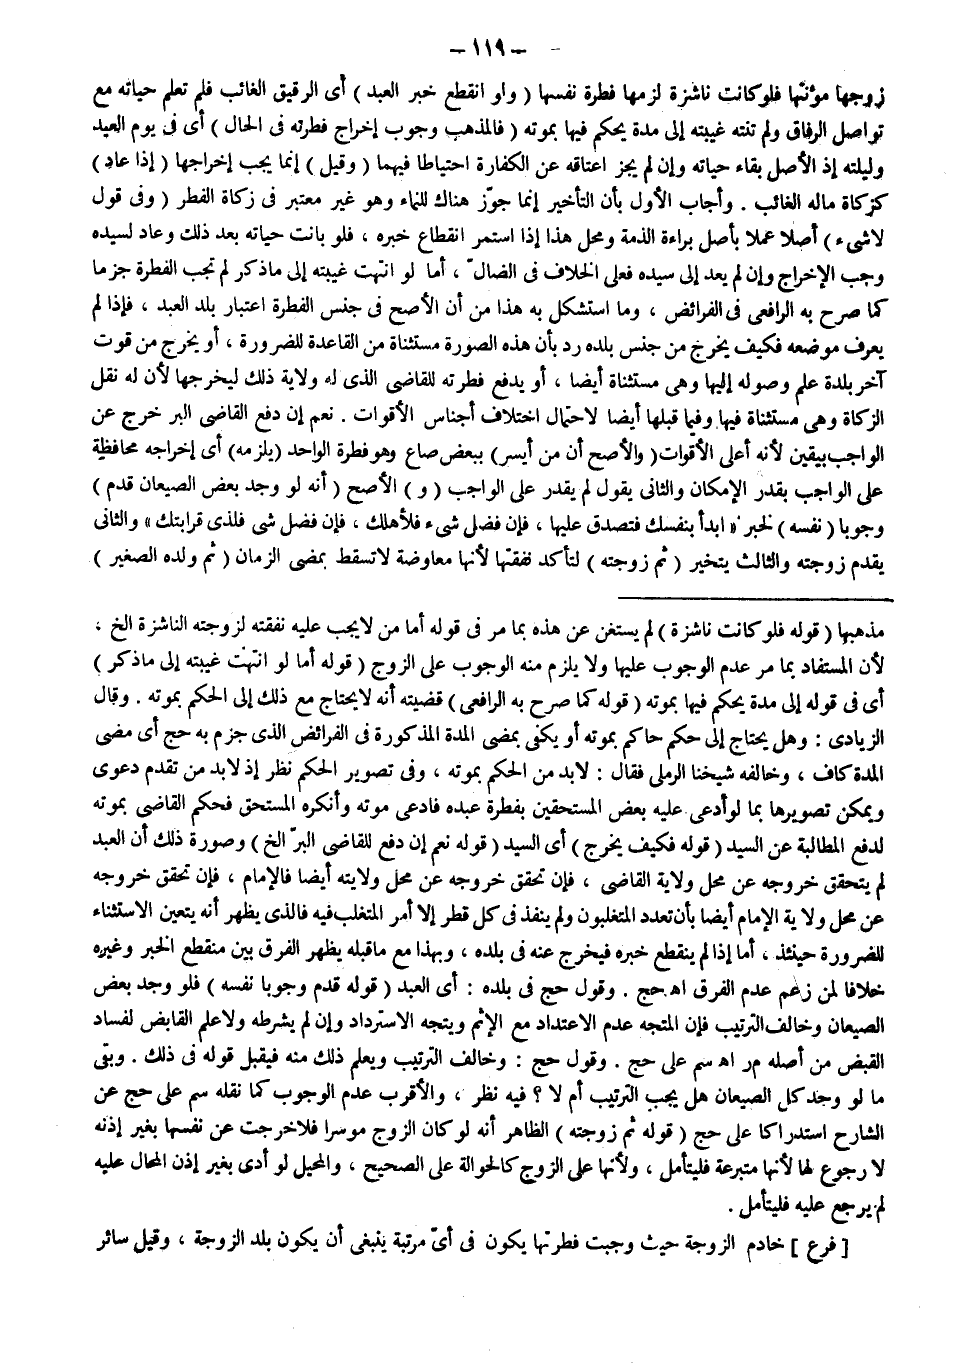 - ١١٩ -
زوجها مؤنتها فلوكانت ناشزة لزمها فطرة نفسها ( ولو انقطع خبر العبد ) أى الرقيق الغائب فلم تعلم حياته مع
تواصل الرفاق ولم تنته غيبته إلى مدة يحكم فيها بموته ( فالمذهب وجوب إخراج فطرته فى الحال ) أى فى يوم العيد
وليلته إذ الأصل بقاء حياته وإن لم يجز اعتاقه عن الكفارة احتياطا فيهما ( وقيل ) إنما يجب إخراجها ( إذا عاد )
كزكاة ماله الغائب . وأجاب الأول بأن التأخير إنما جوّز هناك للنماء وهو غير معتبر فى زكاة الفطر ( وفى قول
لاشىء ) أصلا عملا بأصل براءة الذمة ومحل هذا إذا استمر انقطاع خبره ، فلو بانت حياته بعد ذلك وعاد لسيده
وجب الإخراج وإن لم يعد إلى سيده فعلى الخلاف فى الضالّ ، أما لو انتهت غيبته إلى ماذكر لم تجب الفطرة جزما
كما صرح به الرافعى فى الفرائض ، وما استشكل به هذا من أن الأصح فى جنس الفطرة اعتبار بلد العبد ، فإذا لم
يعرف موضعه فكيف يخرج من جنس بلده رد بأن هذه الصورة مستثناة من القاعدة للضرورة ، أو يخرج من قوت
آخر بلدة علم وصوله إليها وهى مستثناة أيضا ، أو يدفع فطرته للقاضى الذى له ولاية ذلك ليخرجها لأن له نقل
الزكاة وهى مستثناة فيها وفيما قبلها أيضا لاحتمال اختلاف أجناس الأقوات . نعم إن دفع القاضى البر خرج عن
الواجب بيقين لأنه أعلى الأقوات( والأصح أن من أيسر) ببعض صاع وهو فطرة الواحد (يلزمه) أى إخراجه محافظة
على الواجب بقدر الإمكان والثانى يقول لم يقدر على الواجب ( و ) الأصح ( أنه لو وجد بعض الصيعان قدم )
وجوبا ( نفسه ) لخبر « ابدأ بنفسك فتصدق عليها ، فإن فضل شىء فلأهلك ، فإن فضل شى فلذى قرابتك » والثانى
يقدم زوجته والثالث يتخير ( ثم زوجته ) لتأكد نفقتها لأنها معاوضة لاتسقط بمضى الزمان ( ثم ولده الصغير )
مذهبها ( قوله فلوكانت ناشزة ) لم يستغن عن هذه بما مر فى قوله أما من لايجب عليه نفقته لزوجته الناشزة الخ ،
لأن المستفاد بما مر عدم الوجوب عليها ولا يلزم منه الوجوب على الزوج ( قوله أما لو انتهت غيبته إلى ماذكر )
أى فى قوله إلى مدة يحكم فيها بموته ( قوله كما صرح به الرافعى ) قضيته أنه لايحتاج مع ذلك إلى الحكم بموته . وقال
الزيادى : وهل يحتاج إلى حكم حاكم بموته أو يكفى بمضى المدة المذكورة فى الفرائض الذى جزم به حج أى مضى
المدة كاف ، وخالفه شيخنا الرملى فقال : لابد من الحكم بموته ، وفى تصوير الحكم نظر إذ لابد من تقدم دعوى
ويمكن تصويرها بما لوأدعى عليه بعض المستحقين بفطرة عبده فادعى موته وأنكره المستحق فحكم القاضى بموته
لدفع المطالبة عن السيد ( قوله فكيف يخرج ) أى السيد ( قوله نعم إن دفع للقاضى البرّ الخ ) وصورة ذلك أن العبد
لم يتحقق خروجه عن محل ولاية القاضى ، فإن تحقق خروجه عن محل ولايته أيضا فالإمام ، فإن تحقق خروجه
عن محل ولاية الإمام أيضا بأن تعدد المتغلبون ولم ينفذ فى كل قطر إلا أمر المتغلب فيه فالذى يظهر أنه يتعين الاستثناء
للضرورة حينئذ ، أما إذا لم ينقطع خبره فيخرج عنه فى بلده ، وبهذا مع ماقبله يظهر الفرق بين منقطع الخبر وغيره
خلافا لمن زعم عدم الفرق اه حج . وقول حج فى بلده : أى العبد ( قوله قدم وجوبا نفسه ) فلو وجد بعض
الصيعان وخالف الترتيب فإن المتجه عدم الاعتداد مع الإثم ويتجه الاسترداد وإن لم يشرطه ولاعلم القابض لفساد
القبض من أصله مر اه سم على حج . وقول حج : وخالف الترتيب ويعلم ذلك منه فيقبل قوله فى ذلك . وبقى
ما لو وجد كل الصيعان هل يجب الترتيب أم لا ؟ فيه نظر ، والأقرب عدم الوجوب كما نقله سم على حج عن
الشارح استدراكا على حج ( قوله ثم زوجته ) الظاهر أنه لو كان الزوج موسرا فلاخرجت عن نفسها بغير إذنه
لا رجوع لها لأنها متبرعة فليتأمل ، ولأنها على الزوج كالحوالة على الصحيح ، والمحيل لو أدى بغير إذن المحال عليه
لم يرجع عليه فليتأمل .
[ فرع ] خادم الزوجة حيث وجبت فطرتها يكون فى أىّ مرتبة ينبغى أن يكون بلد الزوجة ، وقيل سائر